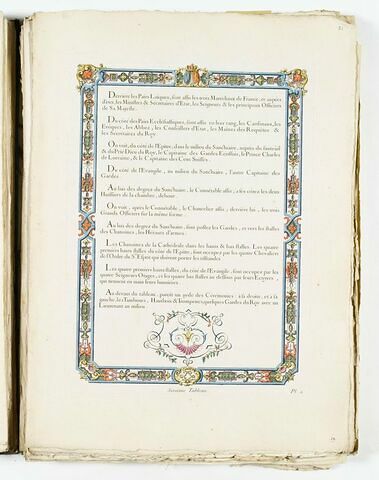 Derriere les Pairs Laïques, sont assis les trois Marechaux de France, et aupres
d'eux, les Ministres & Secretaires d'Etat, les Seigneurs & les principaux Officiers
de Sa Majesté.
Du côté des Pairs Ecclésiastiques, sont assis en leur rang, les Cardinaux, les
Evêques, les Abbez, les Conseillers d'Etat, les Maitres des Requêtes &
les Secretaires du Roy.
On voit, du côté de l'Epitre, dans le milieu du Sanctuaire, auprès du fauteüil
& du Prié Dieu du Roy, le Capitaine des Gardes Ecossois, le Prince Charles
de Lorraine, & le Capitaine des Cent Suisses.
Du côté de l'Evangile, au milieu du Sanctuaire, l'autre Capitaine des
Gardes.
Au bas des degrez du Sanctuaire, le Connétable assis; a ses côtez les deux
Huissiers de la chambre, debout.
On voit, après le Connétable, le Chancelier assis; derriere lui, les trois
Grands Officiers sur la même forme.
Au bas des degrez du Sanctuaire, sont postez les Gardes, et vers les stalles
des Chanoines, les Hérauts d'armes.
Les Chanoines de la Cathédrale dans les hautes & basses stalles. Les quatre
premieres hautes stalles du côté de l'Epitre, sont occupées par les quatre Chevaliers
de l'Ordre du St. Esprit qui doivent porter les offrandes.
Les quatre premieres hautes stalles, du côté de l'Evangile, sont occupées par les
quatre Seigneurs Otages, et les quatre basses au dessous par leurs Ecuyers,
qui tiennent en main leurs bannieres.
Au devant du tableau, paroit un aide des Cérémonies: à la droite, et à la
gauche, les Tambours, Hautbois & trompettes, quelques Gardes du Roy avec un
Lieutenant au milieu.
Tableau
Pl. 2